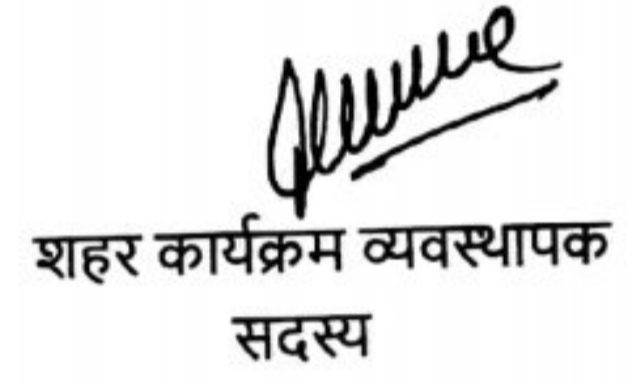 शहर कार्यक्रम व्यवस्थापक
सदस्य